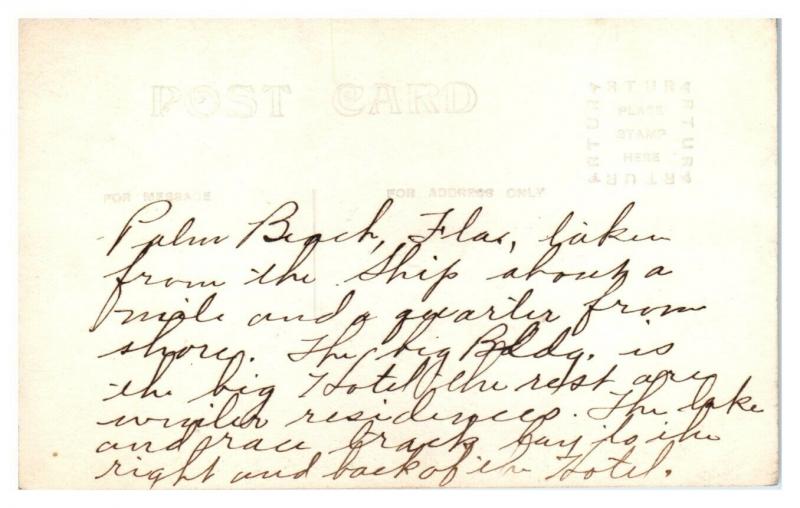 POST CARD
ARTURA
PLACE
STAMP
HERE
ARTURA
ARTURA
ARTURA
FOR MESSAGE
FOR ADDRESS ONLY
Palm Beach, Fla., taken
from the Ship about a
mile and a quarter from
shore. The big Bldg. is
the big Hotel the rest are
winter residences. The lake
and race track lay to the
right and back of the Hotel.